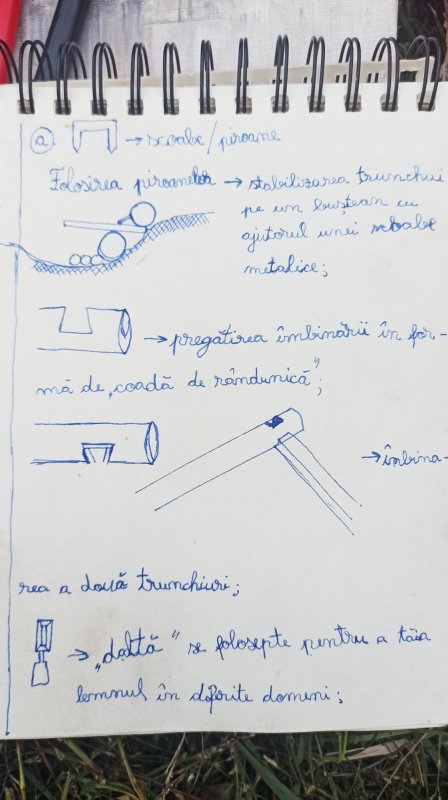 a → scoabe/piroane
Folosirea piroanelor → stabilizarea trunchiui
pe un buștean cu
ajutorul unei scoabe
metalice;
→ pregătirea îmbinării în for-
mă de „coadă de rândunică”;
→ îmbina-
rea a două trunchiuri;
→ „daltă” se folosepte pentru a tăia
lemnul în diferite domeni;